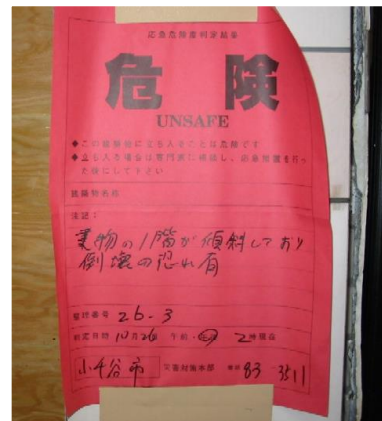 応急危険度判定結果
危険
UNSAFE
◆この建築物に立ち入ることは危険です
◆立ち入る場合は専門家に相談し、応急措置を行っ
た後にして下さい
建築物名称
注記:
建物の1階が傾斜しており
倒壊の恐れ有
整理番号 26-3
判定日時 10月26 午前・午後 2時現在
小千谷市 災害対策本部 電話 83-3511